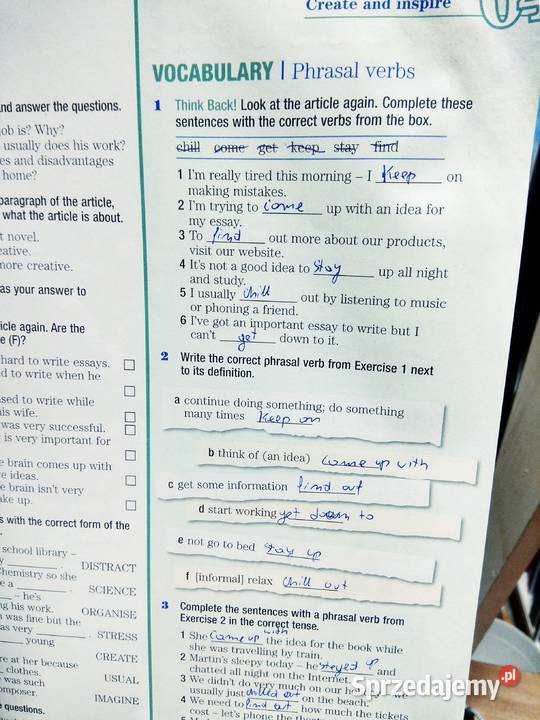 Create and inspire
VOCABULARY | Phrasal verbs
nd answer the questions.
ob is? Why?
usually does his work?
es and disadvantages
home?
paragraph of the article,
what the article is about.
t novel.
eative.
more creative.
as your answer to
icle again. Are the
e (F)?
hard to write essays.
d to write when he
sed to write while
is wife.
was very successful.
is very important for
e brain comes up with
e ideas.
e brain isn't very
ake up.
s with the correct form of the
school library –
y ______. DISTRACT
Chemistry so she
e a ______. SCIENCE
– he's
ng his work. ORGANISE
was fine but the
as very ______. STRESS
______ young
CREATE
re at her because
clothes. USUAL
was such
omposer. IMAGINE
e questions.
1 Think Back! Look at the article again. Complete these
sentences with the correct verbs from the box.
chill come get keep stay find
1 I'm really tired this morning – I keep on
making mistakes.
2 I'm trying to come up with an idea for
my essay.
3 To find out more about our products,
visit our website.
4 It's not a good idea to stay up all night
and study.
5 I usually chill out by listening to music
or phoning a friend.
6 I've got an important essay to write but I
can't get down to it.
2 Write the correct phrasal verb from Exercise 1 next
to its definition.
a continue doing something; do something
many times keep on
b think of (an idea) come up with
c get some information find out
d start working get down to
e not go to bed stay up
f [informal] relax chill out
3 Complete the sentences with a phrasal verb from
Exercise 2 in the correct tense.
1 She came up with the idea for the book while
she was travelling by train.
2 Martin's sleepy today – he stayed up and
chatted all night on the Internet.
3 We didn't do very much on our
usually just chilled out on the beach.
4 We need to find out how much the tickets
cost – let's phone the
Sprzedajemy.pl